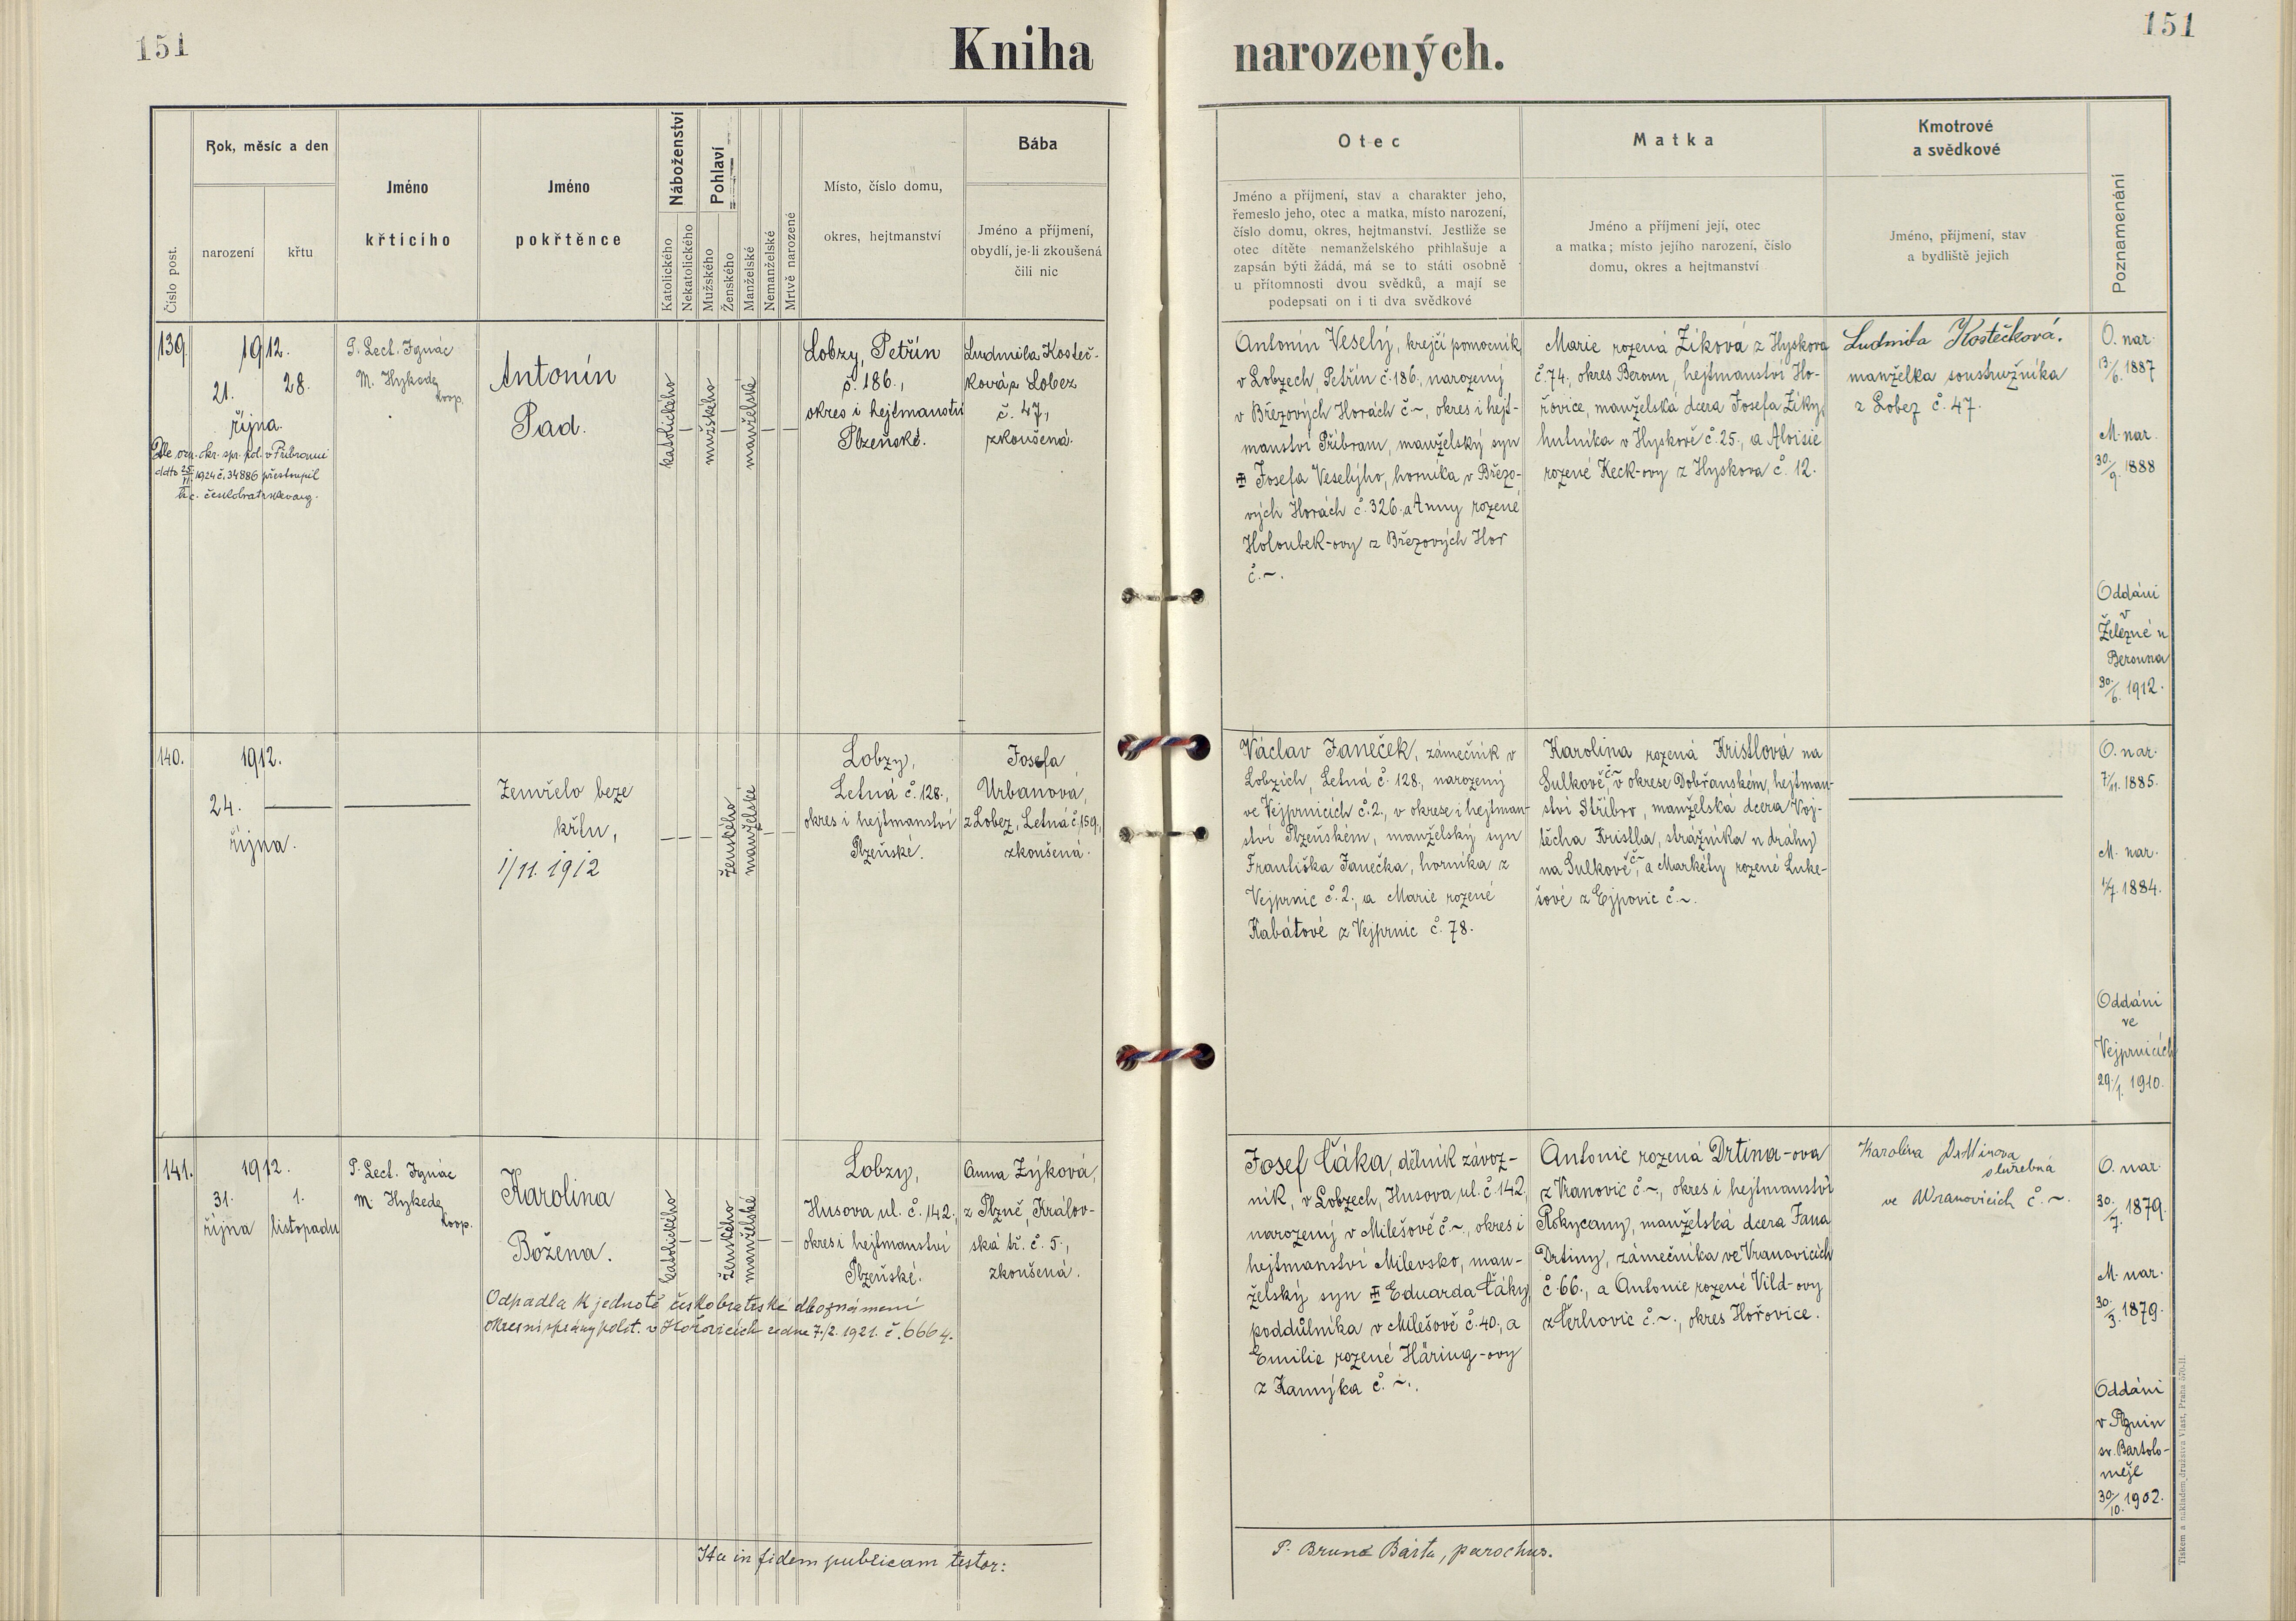 151
Kniha
narozených.
151
Číslo post.
Rok, měsíc a den
narození
křtu
Jméno
křtícího
Jméno
pokřtěnce
Náboženství
Katolického
Nekatolického
Pohlaví
Mužského
Ženského
Manželské
Nemanželské
Mrtvě narozené
Místo, číslo domu,
okres, hejtmanství
Bába
Jméno a příjmení,
obydlí, je-li zkoušená
čili nic
Otec
Jméno a příjmení, stav a charakter jeho,
řemeslo jeho, otec a matka, místo narození,
číslo domu, okres, hejtmanství. Jestliže se
otec dítěte nemanželského přihlašuje a
zapsán býti žádá, má se to státi osobně
u přítomnosti dvou svědků, a mají se
podepsati on i ti dva svědkové
Matka
Jméno a příjmení její, otec
a matka; místo jejího narození, číslo
domu, okres a hejtmanství
Kmotrové
a svědkové
Jméno, přijmení, stav
a bydliště jejich
Poznamenání
139.
1912.
21.
28.
října.
Dle ozn. okr. spr. pol. v Příbrami
ddto 25/VI. 1924 č. 34886 přestoupil
k c. českobratr. evang.
P. Lect. Ignác
M. Hykede,
koop.
Antonín
Pad.
katolického
mužského
manželské
Lobzy, Petřín
č. 186.,
okres i hejtmanství
Plzeňské.
Ludmila Kosteč-
ková z Lobez
č. 47,
zkoušená.
Antonín Veselý, krejčí pomocník,
v Lobzech, Petřín č. 186, narozený
v Březových Horách č. ~, okres i hejt-
manství Příbram, manželský syn
Josefa Veselýho, horníka v Březo-
vých Horách č. 326. a Anny rozené
Holoubek-ovy z Březových Hor
č. ~.
Marie rozená Zíková z Hyskova
č. 74, okres Beroun, hejtmanství Ho-
řovice, manželská dcera Josefa Zíky,
hutníka v Hyskově č. 25., a Aloisie
rozené Keck-ovy z Hyskova č. 12.
Ludmila Kostečková.
manželka soustružníka
z Lobez č. 47.
O. nar.
13./6. 1887
M. nar.
30./9. 1888
Oddáni
v
Železné u
Berouna
30./6. 1912.
140.
1912.
24.
října.
Zemřelo beze
křtu,
1/11. 1912
ženského
manželské
Lobzy,
Letná č. 128.,
okres i hejtmanství
Plzeňské.
Josefa
Urbanová,
z Lobez, Letná č. 159.,
zkoušená.
Václav Janeček, zámečník v
Lobzích, Letná č. 128., narozený
ve Vejprnicích č. 2., v okrese i hejtman-
ství Plzeňském, manželský syn
Františka Janečka, horníka z
Vejprnic č. 2., a Marie rozené
Kabátové z Vejprnic č. 78.
Karolina rozená Kristlová na
Sulkově č. ~, v okrese Dobřanském, hejtman-
ství Stříbro, manželská dcera Voj-
těcha Kristla, strážníka u dráhy
na Sulkově č. ~, a Markéty rozené Luke-
šové z Ejpovic č. ~.
O. nar.
7/11. 1885.
M. nar.
1/7. 1884.
Oddáni
ve
Vejprnicích
29./1. 1910.
141.
1912.
31.
1.
října
listopadu
P. Lect. Ignác
M. Hykede,
koop.
Karolina
Božena.
Odpadla k jednotě českobratrské dle oznámení
okresní správy polit. v Hořovicích ze dne 7./2. 1921. č. 6664.
katolického
ženského
manželské
Lobzy,
Husova ul. č. 142.,
okres i hejtmanství
Plzeňské.
Anna Zýková,
z Plzně, Králov-
ská tř. č. 5.,
zkoušená.
Josef Čáka, dělník závoz-
ník, v Lobzech, Husova ul. č. 142,
narozený v Milešově č. ~, okres i
hejtmanství Milevsko, man-
želský syn Eduarda Čáky,
poddůlníka v Milešově č. 40., a
Emilie rozené Häring-ovy
z Kamýka č. ~.
Antonie rozená Drtina-ova
z Vranovic č. ~, okres i hejtmanství
Rokycany, manželská dcera Jana
Drtiny, zámečníka ve Vranovicích
č. 66., a Antonie rozené Vild-ovy
z Čerhovic č. ~., okres Hořovice.
Karolina Drtinova
služebná
ve Wranovicích č. ~.
O. nar.
30./7. 1879.
M. nar.
30./3. 1879.
Oddáni
v Plzni u
sv. Bartolo-
měje
30./10. 1902.
Ita in fidem publicam testor:
P. Bruno Bárta, parochus.
Tiskem a nákladem družstva Vlast, Praha 570-II.